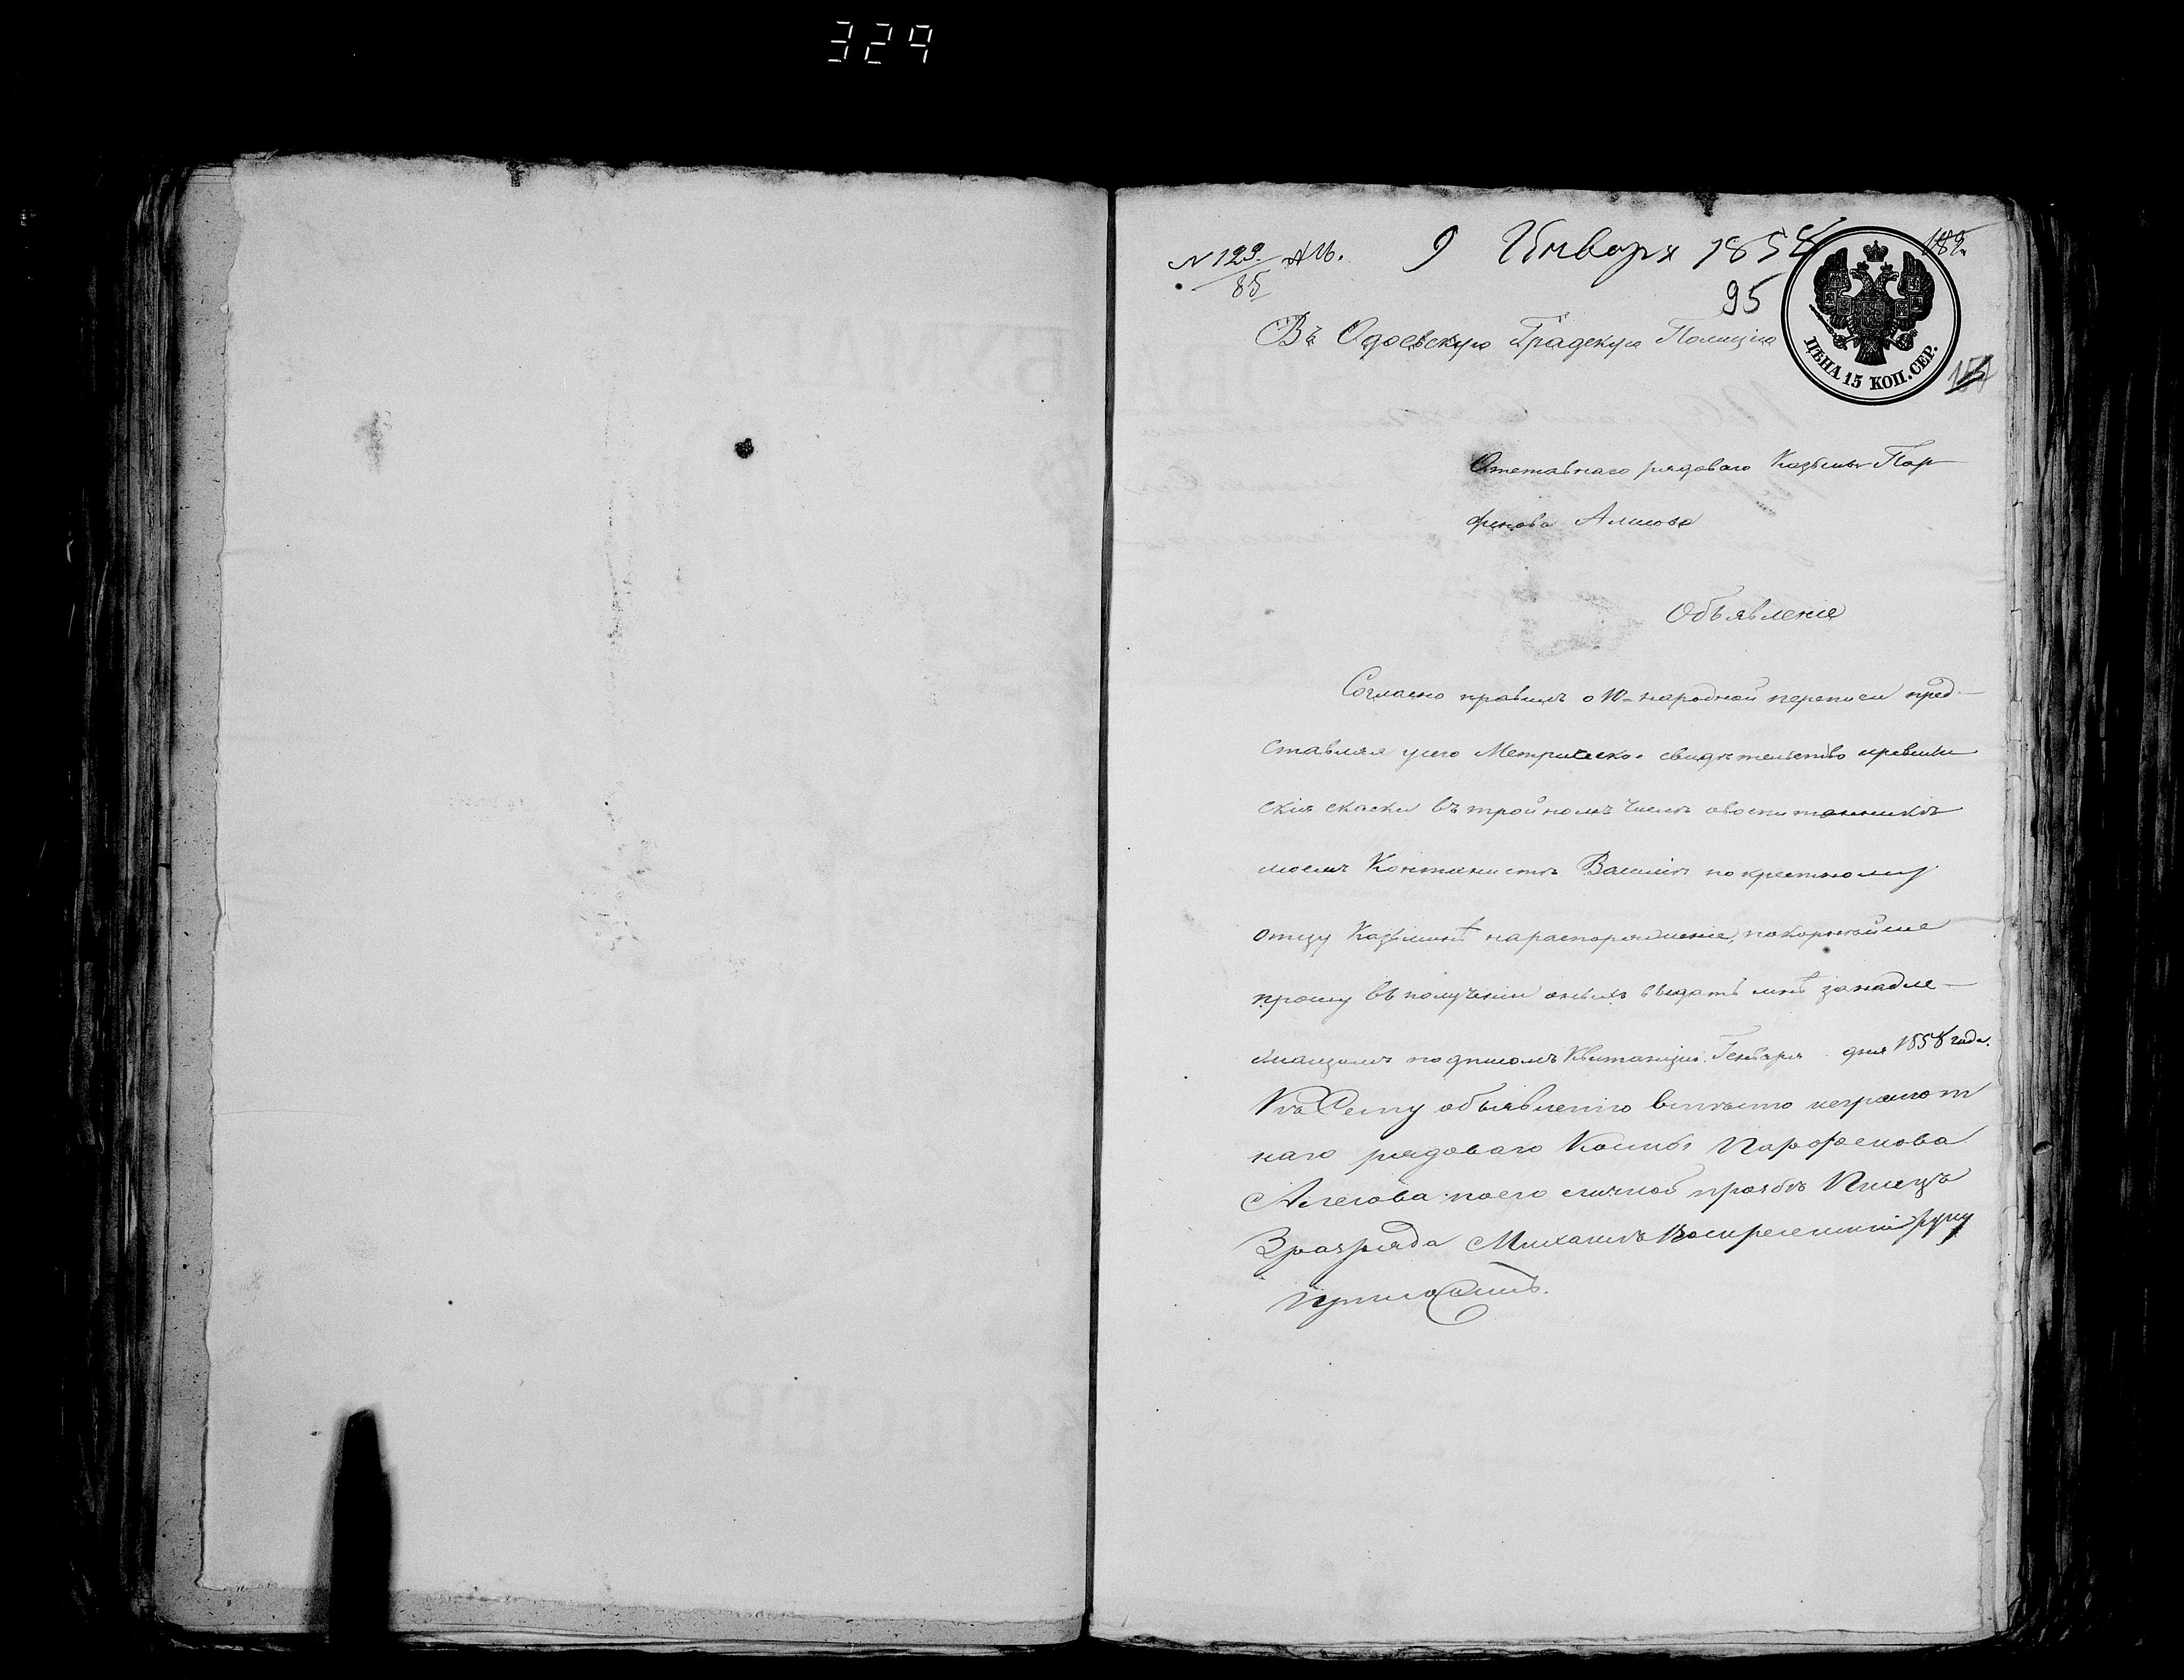 329
N 129. 9 Января 1858 182.
85
95
Въ Одоевскую Градскую Полицію
ЦѢНА 15 КОП. СЕР.
Отставнаго рядоваго Козьмы Пар-
фенова
Объявленіе
Согласно правилъ о 10-народной переписи пред-
ставляя у сего Метрическое свидѣтельство и ревизи
скія скаски въ тройномъ числѣ о воспитанникѣ
моемъ Кантонистѣ Василіѣ по крестному
отцу Козьминѣ на распоряженіе, покорнѣйше
прошу въ полученіи оныхъ выдать мнѣ за надле-
жащимъ подписомъ Квитанцію. Генваря дня 1858 года.
Къ Сему объявленію вмѣсто неграмот
наго рядоваго Космы Парфенова
по его личной прозбѣ Писецъ
3 разряда Михаилъ Воскресенскій руку
приложилъ.